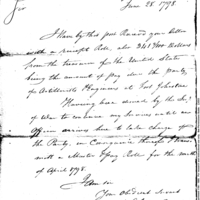 June 28 1798
Sir
I Have by this post Received your letter
with a receipt Roll, also 261 Dollars
from the Treasurer of the United States
being the amount of pay due the party
of Artillerists & Engineers at Fort Johnston
Having been desired by the Sec'y
of War to continue my services until an
officer arrives here to take charge of
the Party, in Consequence thereof I have
sent a Muster & Pay Roll for the month
of April 1798.
I am Sir
Your Obedient Servant